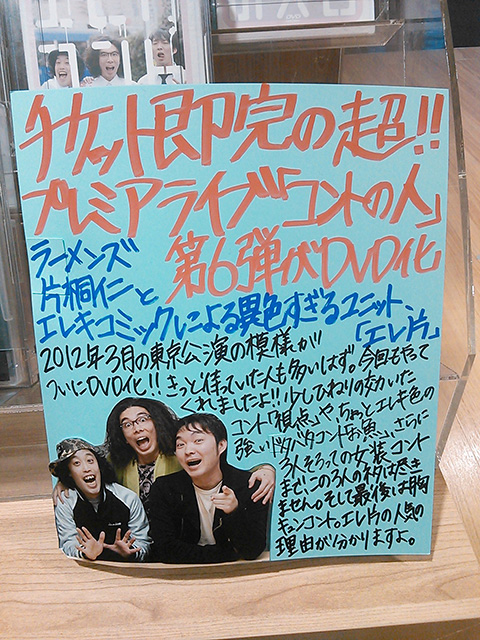 チケット即完の超!!
プレミアライブ「コントの人」
第6弾がDVD化
ラーメンズ
片桐仁と
エレキコミックによる異色すぎるユニット、
「エレ片」
2012年3月の東京公演の模様が
ついにDVD化!!きっと待っていた人も多いはず。今回もやって
くれましたよ!!少しひねりの効いた
コント「視点」や、ちゃんとエレキ色の
強いドタバタコント「お買い」、さらに
3人そろっての女装コント
まで!この3人のネタは尽き
ません。そして最後は胸
キュンコント。エレ片の人気の
理由が分かりますよ。